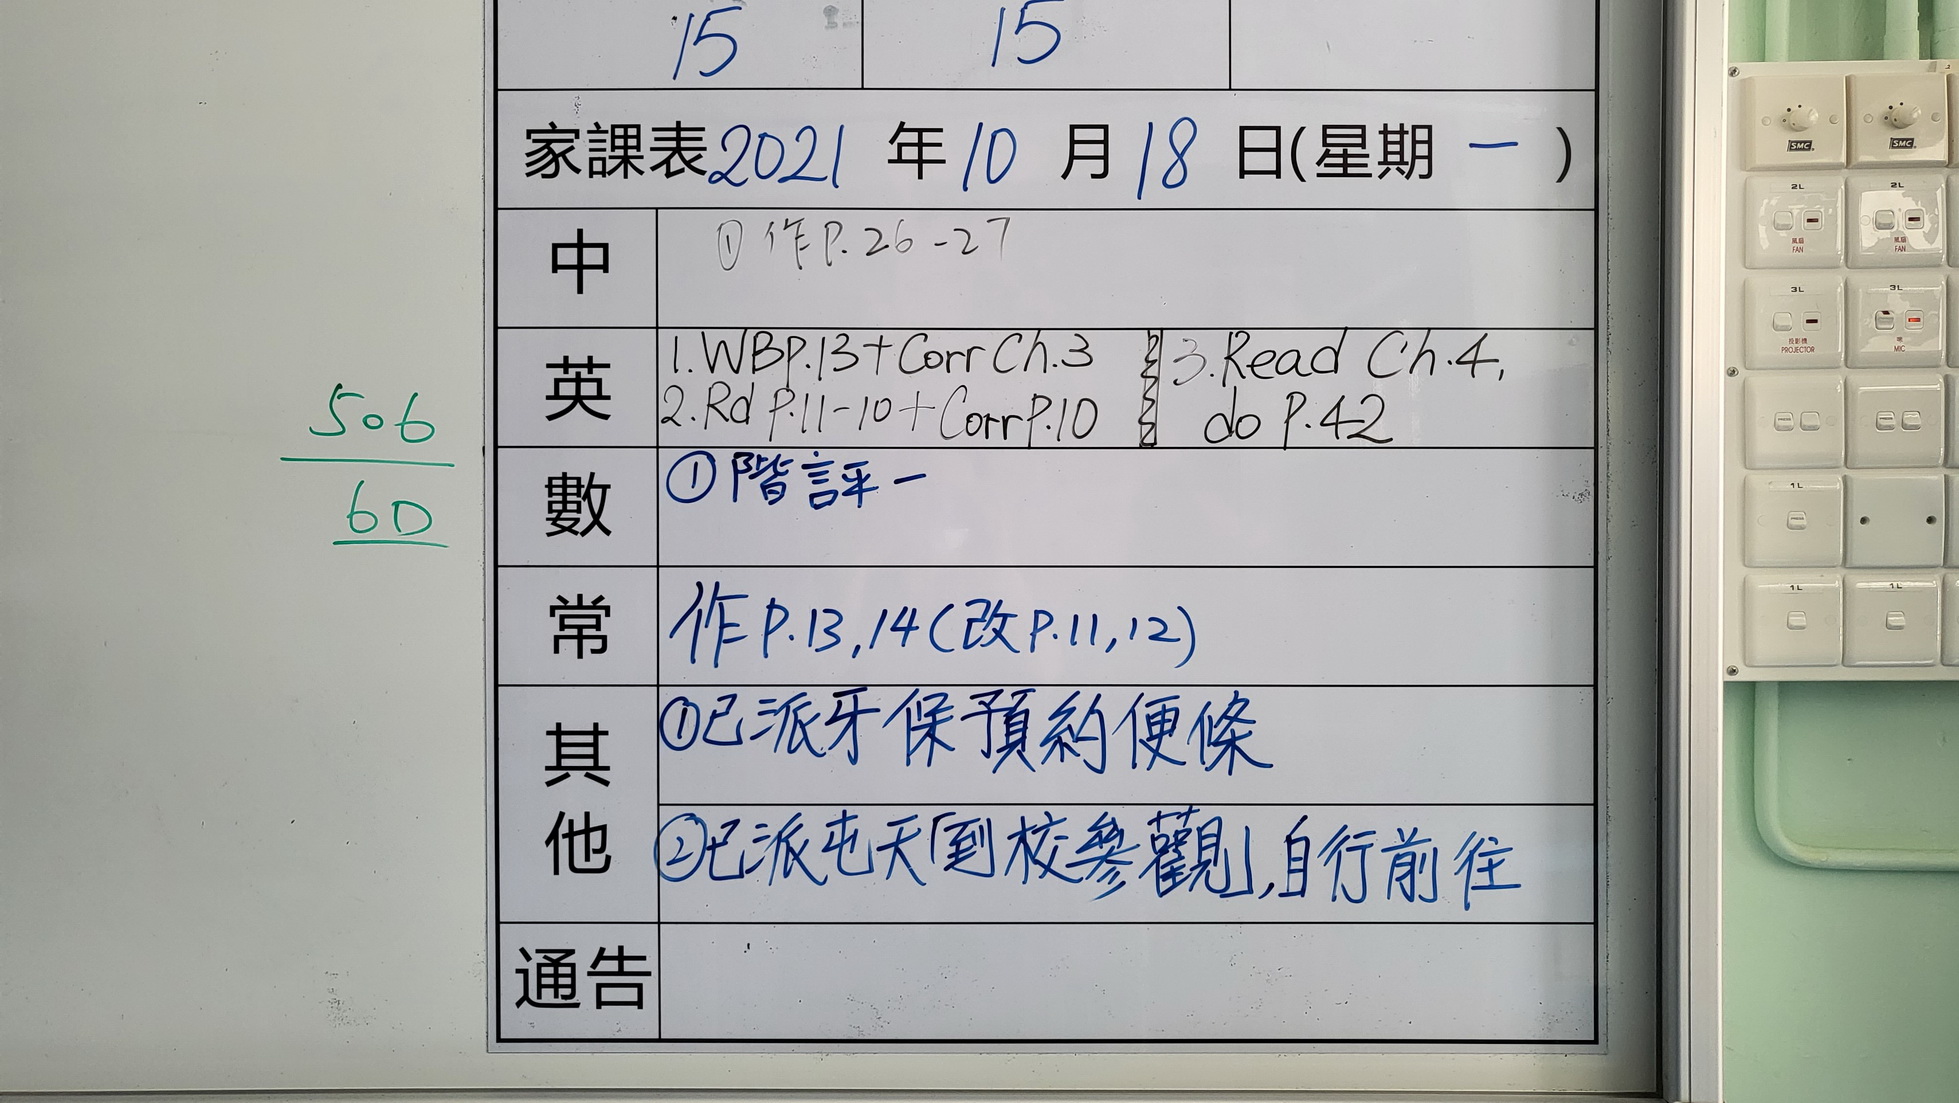 15 15
家課表 2021 年 10 月 18 日(星期 一 )
中 ① 作 P.26-27
英 1. WB P.13 + Corr Ch.3 3. Read Ch.4,
2. Rd P.11-10 + Corr P.10 do P.42
數 ① 階評一
常 作 P.13,14 (改 P.11,12)
其他 ①已派牙保預約便條
②已派屯天「到校參觀」,自行前往
通告
506
60
SMC SMC
2L 2L
風扇 風扇
FAN FAN
3L 3L
投影機 咪
PROJECTOR MIC
1L
1L 1L